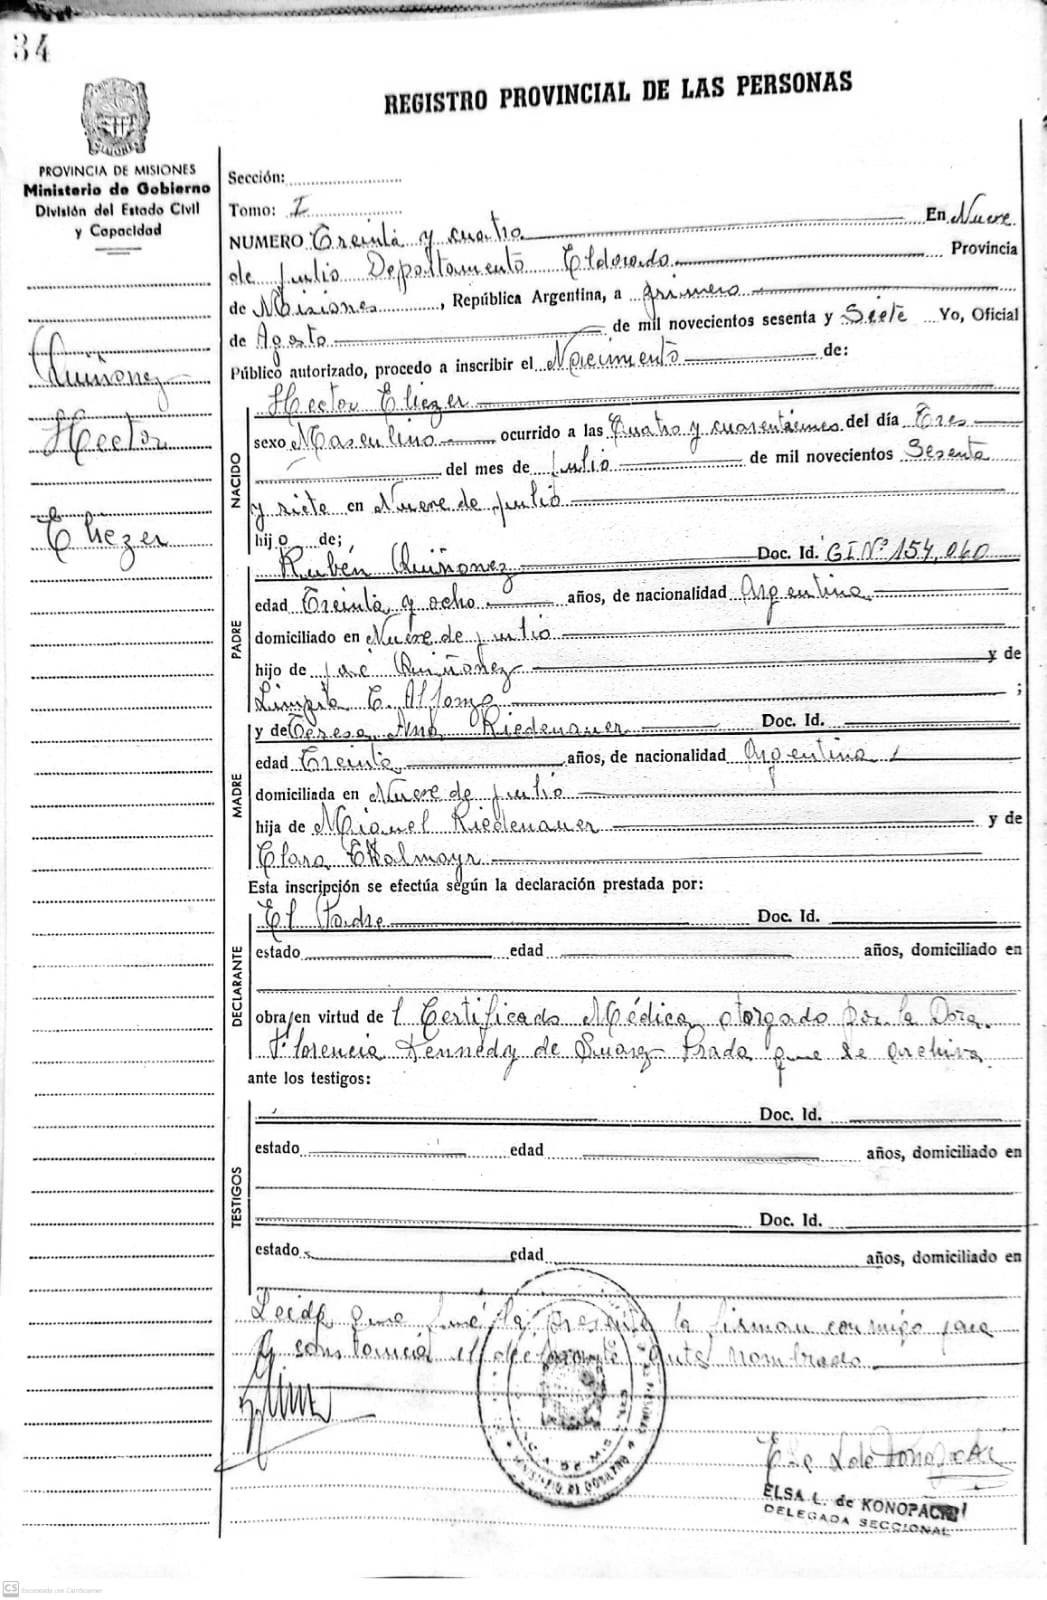 34
REGISTRO PROVINCIAL DE LAS PERSONAS
PROVINCIA DE MISIONES
Ministerio de Gobierno
División del Estado Civil
y Capacidad
Quiñonez
Hector
Eliezer
Sección:
Tomo: I
NUMERO Treinta y cuatro En Nueve
de julio Departamento Eldorado Provincia
de Misiones, República Argentina, a primero
de Agosto de mil novecientos sesenta y Siete Yo, Oficial
Público autorizado, procedo a inscribir el Nacimento de:
NACIDO
Hector Eliezer
sexo Masculino ocurrido a las Cuatro y cuarenta del día Tres
del mes de julio de mil novecientos Sesenta
y siete en Nueve de julio
hijo de;
PADRE
Rubén Quiñonez Doc. Id. GI Nº 154,060
edad Treinta y ocho años, de nacionalidad Argentina
domiciliado en Nueve de julio
hijo de José Quiñonez y de
E. Alfonzo ;
MADRE
y de Teresa Ana Riedenauer Doc. Id.
edad Treinta años, de nacionalidad Argentina
domiciliada en Nueve de julio
hija de Miguel Riedenauer y de
Clara
Esta inscripción se efectúa según la declaración prestada por:
DECLARANTE
El Padre Doc. Id.
estado edad años, domiciliado en
obra/en virtud de l Certificado Médica otorgado por la Dora.
Florencia Kennedy de Suarez Prada que se archiva
ante los testigos:
TESTIGOS
Doc. Id.
estado edad años, domiciliado en
Doc. Id.
estado edad años, domiciliado en
Leida que fué la presente la firman conmigo para
constancia el declarante antes nombrado
ELSA L. de KONOPACKI
DELEGADA SECCIONAL
CS Escaneado con CamScanner